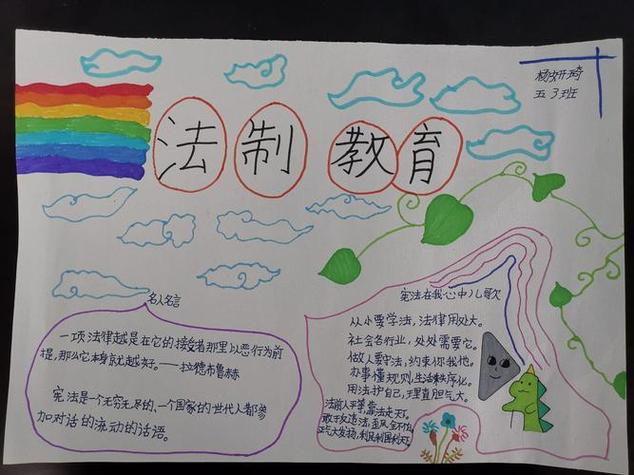 杨妍琦
五3班
法制教育
名人名言
一项法律越是在它的接受者那里以恶行为前
提,那么它本身就越好。——拉德布鲁赫
宪法是一个无穷无尽的,一个国家的世代人都参
加对话的流动的话语。
宪法在我心中儿歌
从小要学法,法律用处大。
社会各行业,处处需要它。
做人要守法,约束你我他。
办事懂规则,生活秩序化。
用法护自己,理直胆气大。
法前人平等,靠法走天下。
敢于改违法,歪风全不怕。
正气大发扬,利民利国利天下